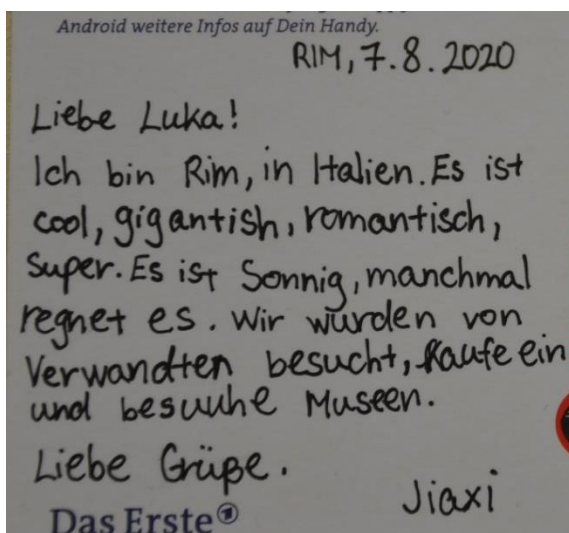 Android weitere Infos auf Dein Handy.
RIM, 7.8.2020
Liebe Luka!
Ich bin Rim, in Italien. Es ist
cool, gigantish, romantisch,
super. Es ist Sonnig, manchmal
regnet es. Wir wurden von
Verwandten besucht, kaufe ein
und besuuhe Museen.
Liebe Grüße.
Jiaxi
Das Erste